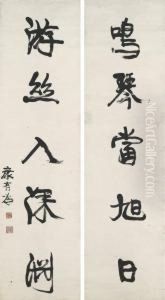 鳴琴當旭日
游絲入深淵
康有為
NiceArtGallery.com